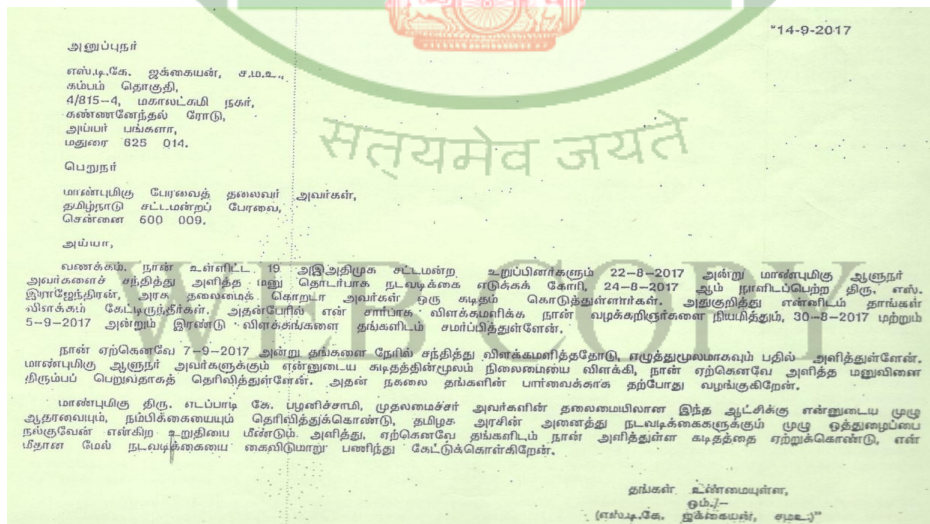 "14-9-2017
அனுப்புநர்
எஸ்.டி.கே. ஜக்கையன், ச.ம.உ.,
கம்பம் தொகுதி,
4/815-4, மகாலட்சுமி நகர்,
கண்ணனேந்தல் ரோடு,
அய்யர் பங்களா,
மதுரை 625 014.
सत्यमेव जयते
பெறுநர்
மாண்புமிகு பேரவைத் தலைவர் அவர்கள்,
தமிழ்நாடு சட்டமன்றப் பேரவை,
சென்னை 600 009.
அய்யா,
WEB COPY
வணக்கம். நான் உள்ளிட்ட 19 அஇஅதிமுக சட்டமன்ற உறுப்பினர்களும் 22-8-2017 அன்று மாண்புமிகு ஆளுநர்
அவர்களைச் சந்தித்து அளித்த மனு தொடர்பாக நடவடிக்கை எடுக்கக் கோரி, 24-8-2017 ஆம் நாளிடப்பெற்ற திரு. எஸ்.
இராஜேந்திரன், அரசு தலைமைக் கொறடா அவர்கள் ஒரு கடிதம் கொடுத்துள்ளார்கள். அதுகுறித்து என்னிடம் தாங்கள்
விளக்கம் கேட்டிருந்தீர்கள். அதன்பேரில் என் சார்பாக விளக்கமளிக்க நான் வழக்கறிஞர்களை நியமித்தும், 30-8-2017 மற்றும்
5-9-2017 அன்றும் இரண்டு விளக்கங்களை தங்களிடம் சமர்ப்பித்துள்ளேன்.
நான் ஏற்கெனவே 7-9-2017 அன்று தங்களை நேரில் சந்தித்து விளக்கமளித்ததோடு, எழுத்துமூலமாகவும் பதில் அளித்துள்ளேன்.
மாண்புமிகு ஆளுநர் அவர்களுக்கும் என்னுடைய கடிதத்தின்மூலம் நிலைமையை விளக்கி, நான் ஏற்கெனவே அளித்த மனுவினை
திரும்பப் பெறுவதாகத் தெரிவித்துள்ளேன். அதன் நகலை தங்களின் பார்வைக்காக தற்போது வழங்குகிறேன்.
மாண்புமிகு திரு. எடப்பாடி கே. பழனிச்சாமி, முதலமைச்சர் அவர்களின் தலைமையிலான இந்த ஆட்சிக்கு என்னுடைய முழு
ஆதரவையும், நம்பிக்கையையும் தெரிவித்துக்கொண்டு, தமிழக அரசின் அனைத்து நடவடிக்கைகளுக்கும் முழு ஒத்துழைப்பை
நல்குவேன் என்கிற உறுதியை மீண்டும் அளித்து, ஏற்கெனவே தங்களிடம் நான் அளித்துள்ள கடிதத்தை ஏற்றுக்கொண்டு, என்
மீதான மேல் நடவடிக்கையை கைவிடுமாறு பணிந்து கேட்டுக்கொள்கிறேன்.
தங்கள் உண்மையுள்ள,
ஒம்./-
(எஸ்.டி.கே. ஜக்கையன், சமஉ.)"